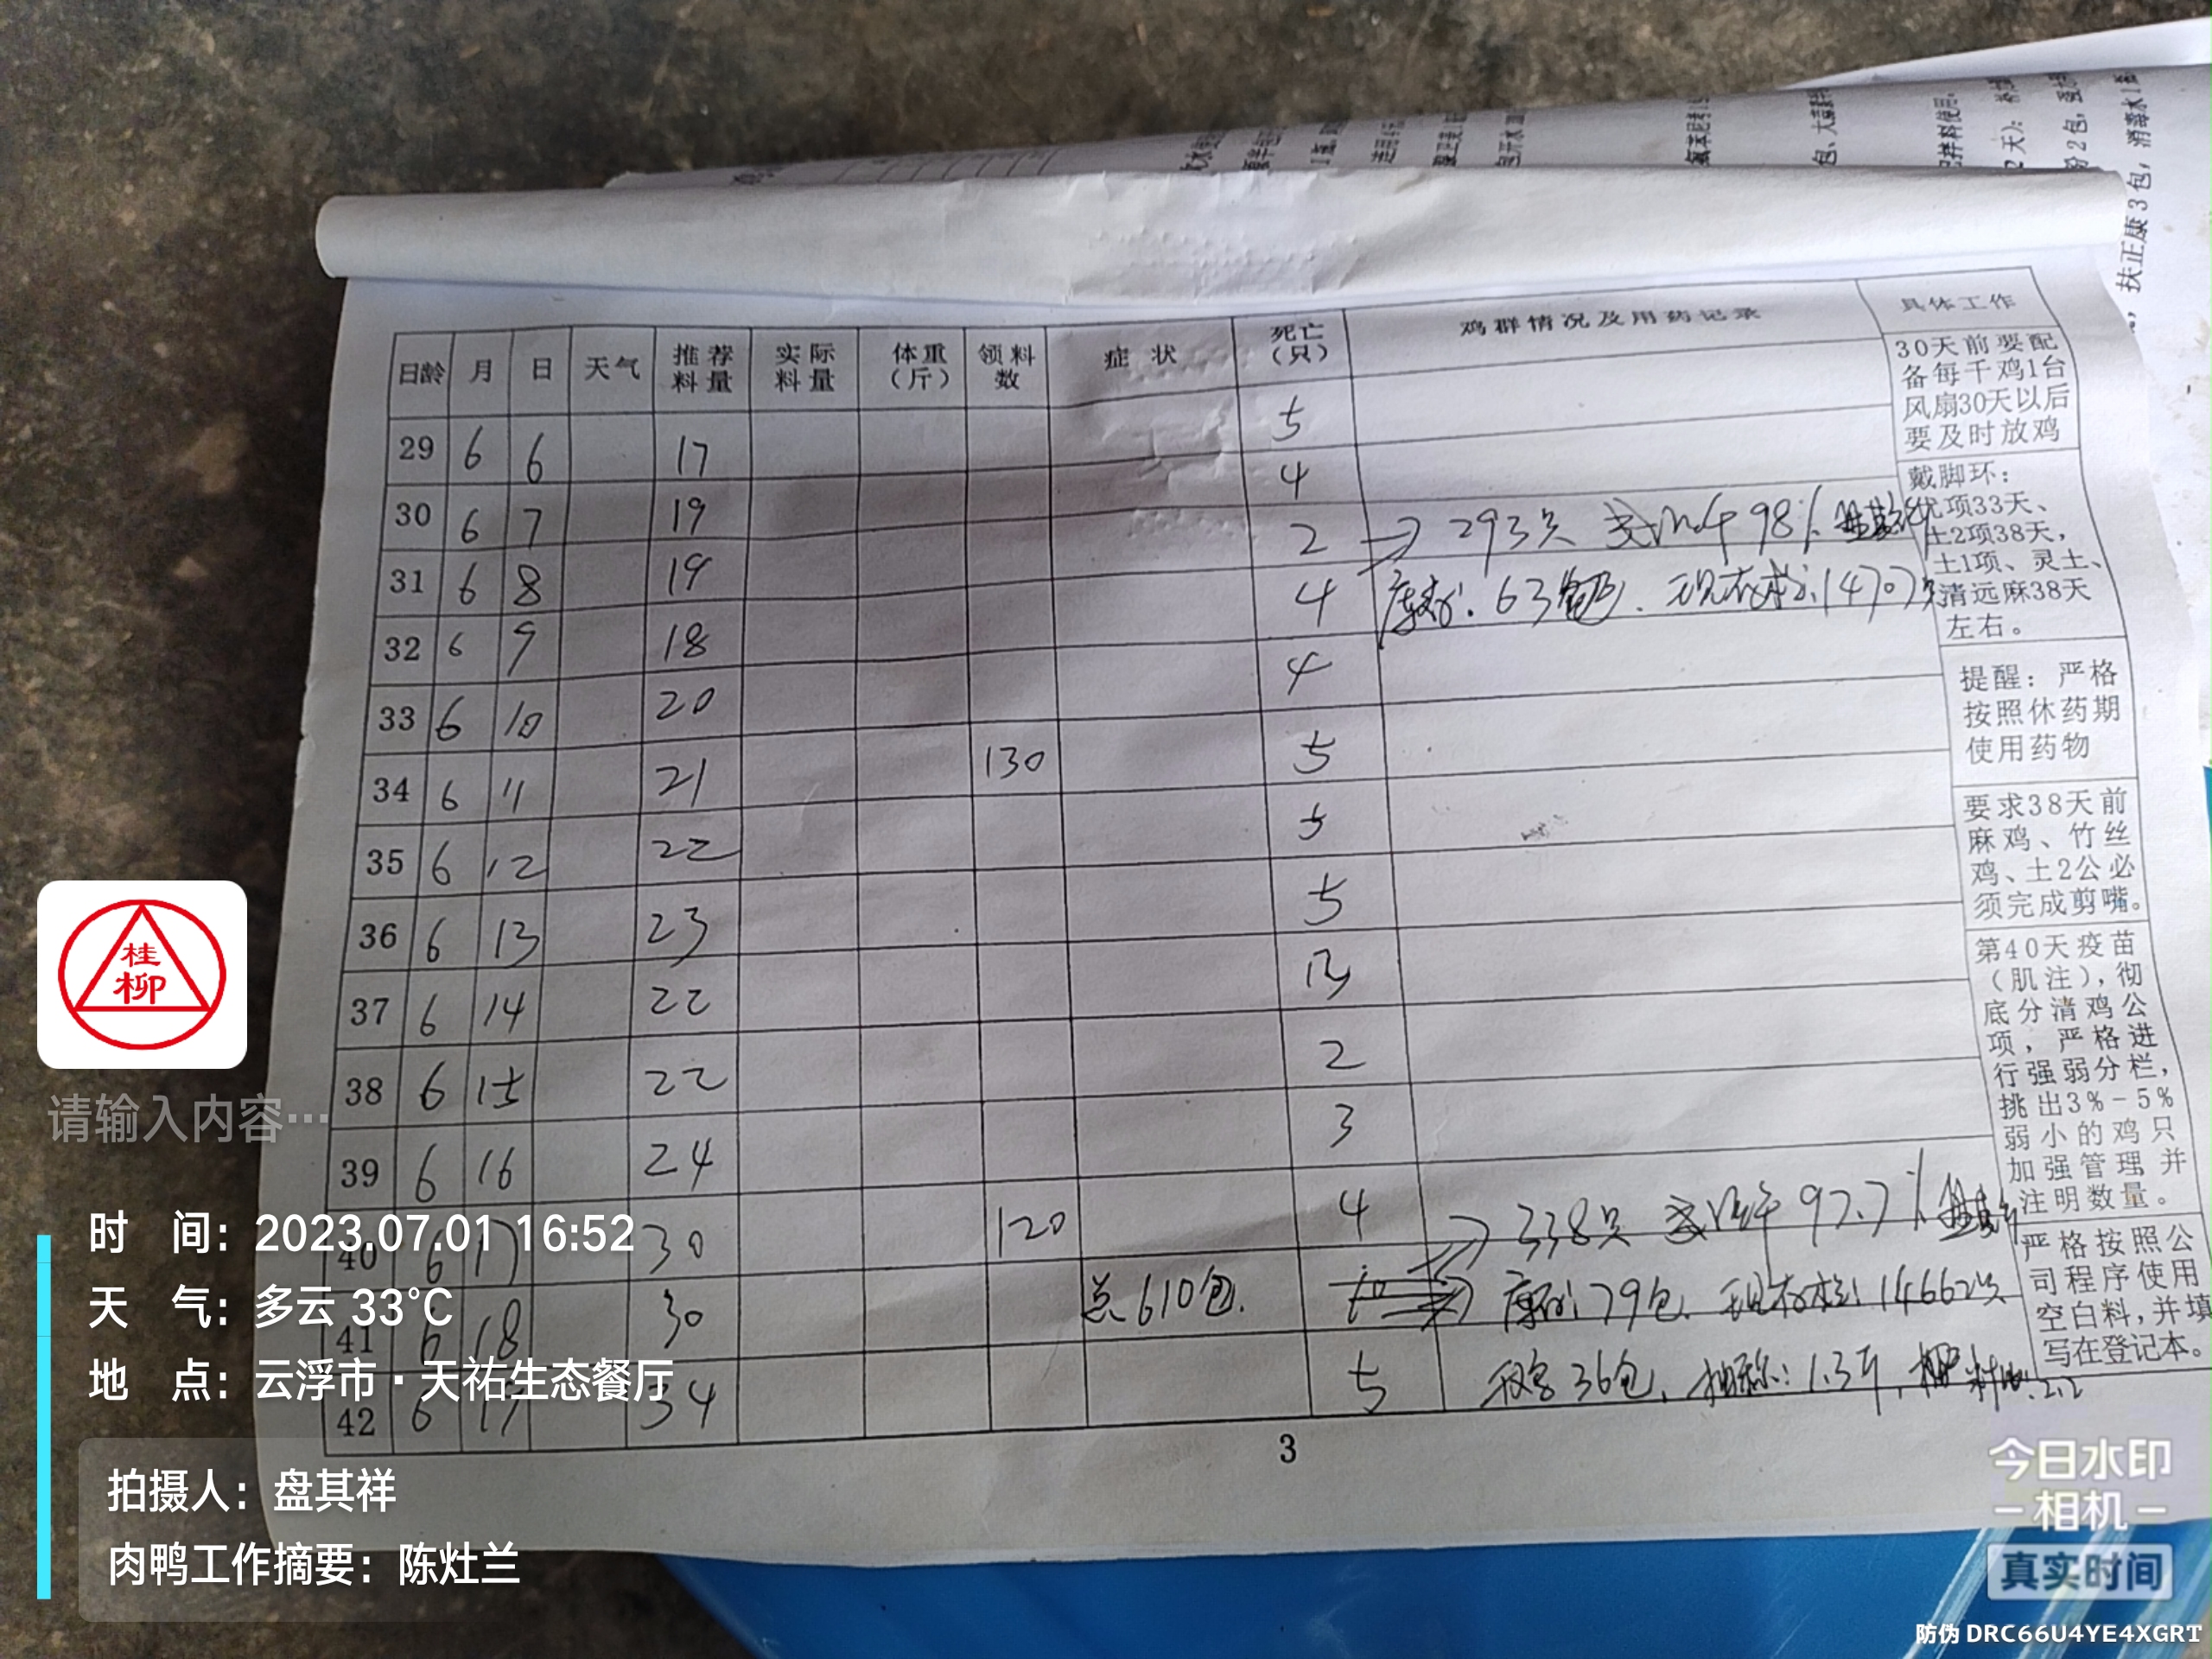 日龄 月 日 天气 推荐料量 实际料量 体重(斤) 领料数 症状 死亡(只) 鸡群情况及用药记录 具体工作
29 6 6 17 5
30 6 7 19 4
31 6 8 19 2 → 293只 98%
32 6 9 18 4 63 现存栏:14707只
33 6 10 20 4
34 6 11 21 130 5
35 6 12 22 5
36 6 13 23 5
37 6 14 22 13
38 6 15 22 2
39 6 16 24 3
40 6 17 30 120 4 → 338只 97.7%
41 6 18 30 总610包. 79包. 现存栏:14662只
42 6 34 5 36包. 1.3斤, 2.2
30天前要配
备每千鸡1台
风扇30天以后
要及时放鸡
戴脚环:
优项33天、
土2项38天,
土1项、灵土、
清远麻38天
左右。
提醒:严格
按照休药期
使用药物
要求38天前
麻鸡、竹丝
鸡、土2公必
须完成剪嘴。
第40天疫苗
(肌注),彻
底分清鸡公
项,严格进
行强弱分栏,
挑出3%-5%
弱小的鸡只
加强管理并
注明数量。
严格按照公
司程序使用
空白料,并填
写在登记本。
3
扶正康3包,消毒水1
桂
柳
请输入内容…
时 间:2023.07.01 16:52
天 气:多云 33℃
地 点:云浮市·天祐生态餐厅
拍摄人:盘其祥
肉鸭工作摘要:陈灶兰
今日水印
-相机-
真实时间
防伪 DRC66U4YE4XGRT